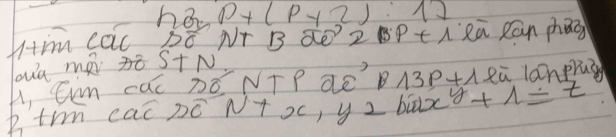 P + (P + 2) : 12
1, tìm các số NT P để 2P + 1 là lập phương
của một số STN.
1, tìm các số NTP để 13P + 1 là lập phương
2, tìm các số NT x, y z biết x^y + 1 = z